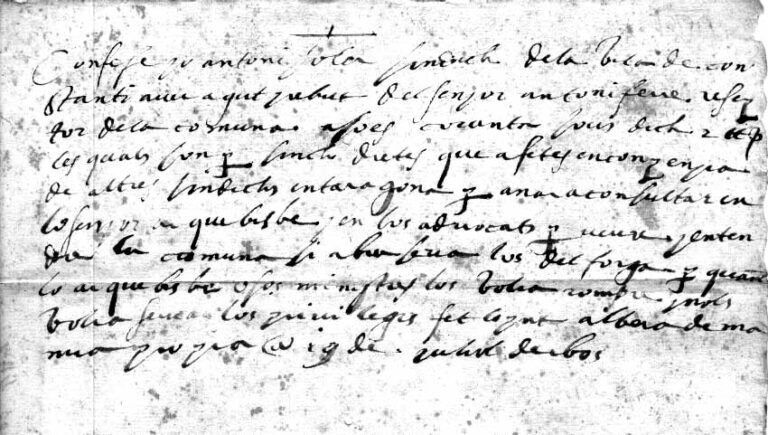 Confese jo antoni soler sindich de la vila de con
stanti aver agut y rebut del senjor antoni ferre resep
tor de la comuna asoes coranta sous dich 2 ll p
les quals son p sinch dietes que a fetes en conpenjia
de altres sindichs en taragona p anar a consultar en
lo senjor arquebisbe y en los advocats p veure y enten
dre la comuna si los del forga p quant
lo arquebisbe o sos ministres los volia rompre y nols
volia servar los privilegis fet lo pnt albera de ma
mia propia @ 19 de juliol de